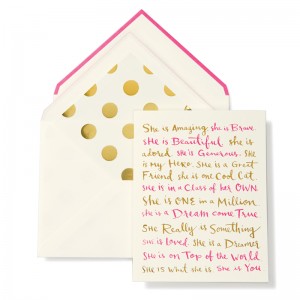 She is Amazing. she is Brave
SHe is Beautiful. she is
adored. she is Generous. She
is my Hero. She is a Great
Friend. she is one Cool Cat.
She is in a Class of her OWN
She is ONE in a Million.
she is a Dream come True
She Really is Something
she is Loved. she is a Dreamer
She is on Top of the World
SHE IS What she is She is You